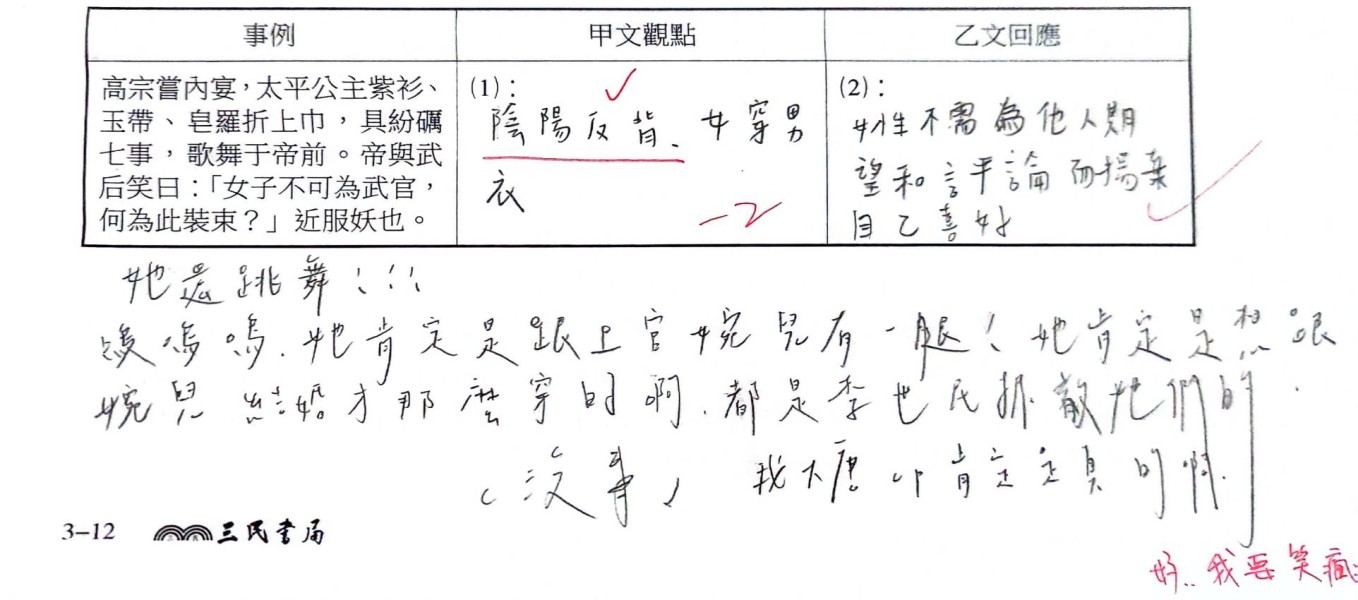 事例
甲文觀點
乙文回應
高宗嘗內宴，太平公主紫衫、
玉帶、皂羅折上巾，具紛礪
七事，歌舞于帝前。帝與武
后笑曰：「女子不可為武官，
何為此裝束？」近服妖也。
(1)：
陰陽反背、女穿男
衣
-2
(2)：
女性不需為他人期
望和評論而揚棄
自己喜好
她還跳舞！！！
嗚嗚.她肯定是跟上官婉兒有一腿！她肯定是想跟
婉兒結婚才那麼穿的啊.都是李世民拆散她們的.
（沒事） 我大唐CP肯定是真的啊.
3-12 三民書局
好..我要笑瘋